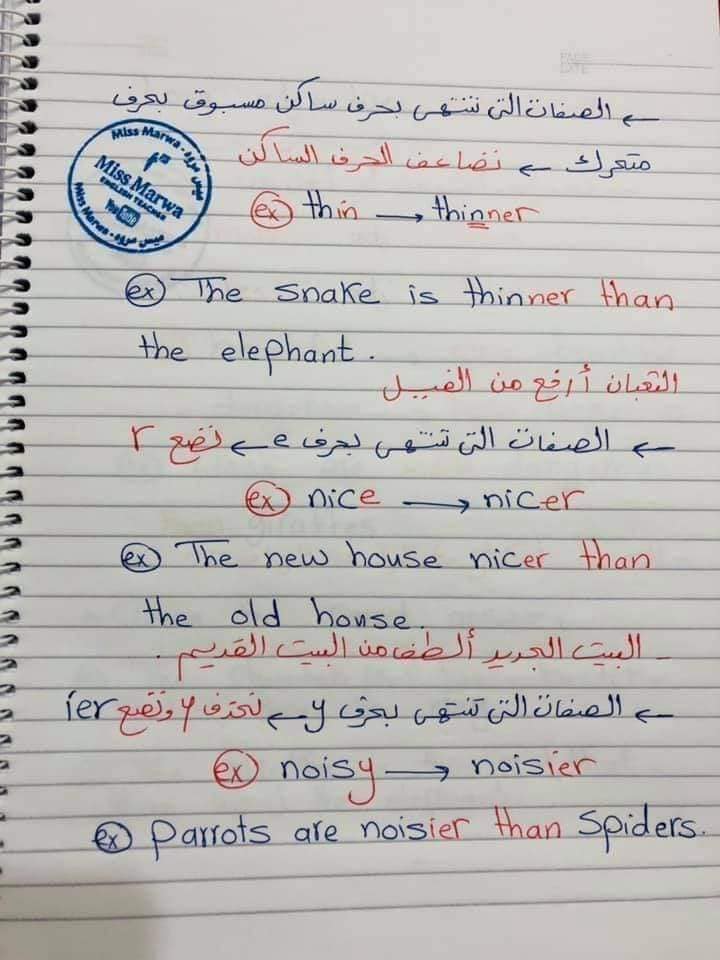 ← الصفات التى تنتهى بحرف ساكن مسبوق بحرف
متحرك ← نضاعف الحرف الساكن
Miss Marwa - ميس مروه
Miss Marwa
ENGLISH TEACHER
YouTube
Miss Marwa - ميس مروه
ex thin → thinner
ex The snake is thinner than
the elephant.
الثعبان أرفع من الفيل
← الصفات التى تنتهى بحرف e ← نضع r
ex nice → nicer
ex The new house nicer than
the old house.
- البيت الجديد ألطف من البيت القديم.
← الصفات التى تنتهى بحرف y ← نحذف y ونضع ier
ex noisy → noisier
ex Parrots are noisier than Spiders.